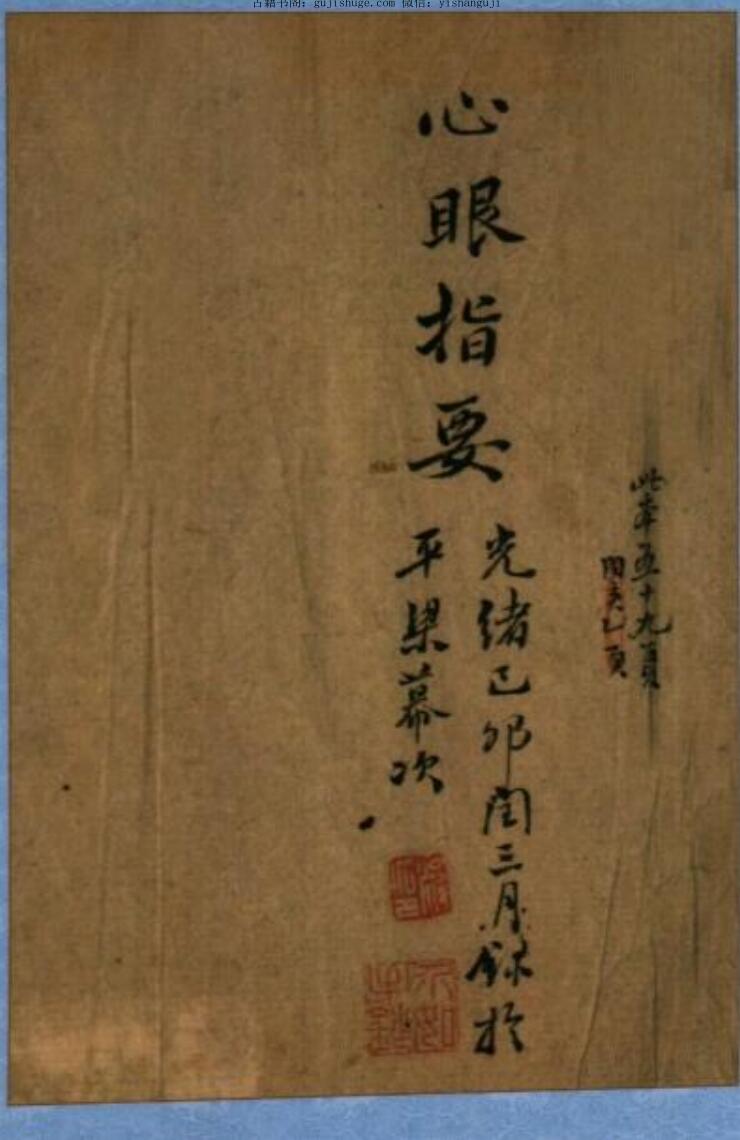 古籍书阁：gujishuge.com 微信：yishanguji
此本五十九頁
心眼指要
光緒己卯閏三月録於
平梁幕次